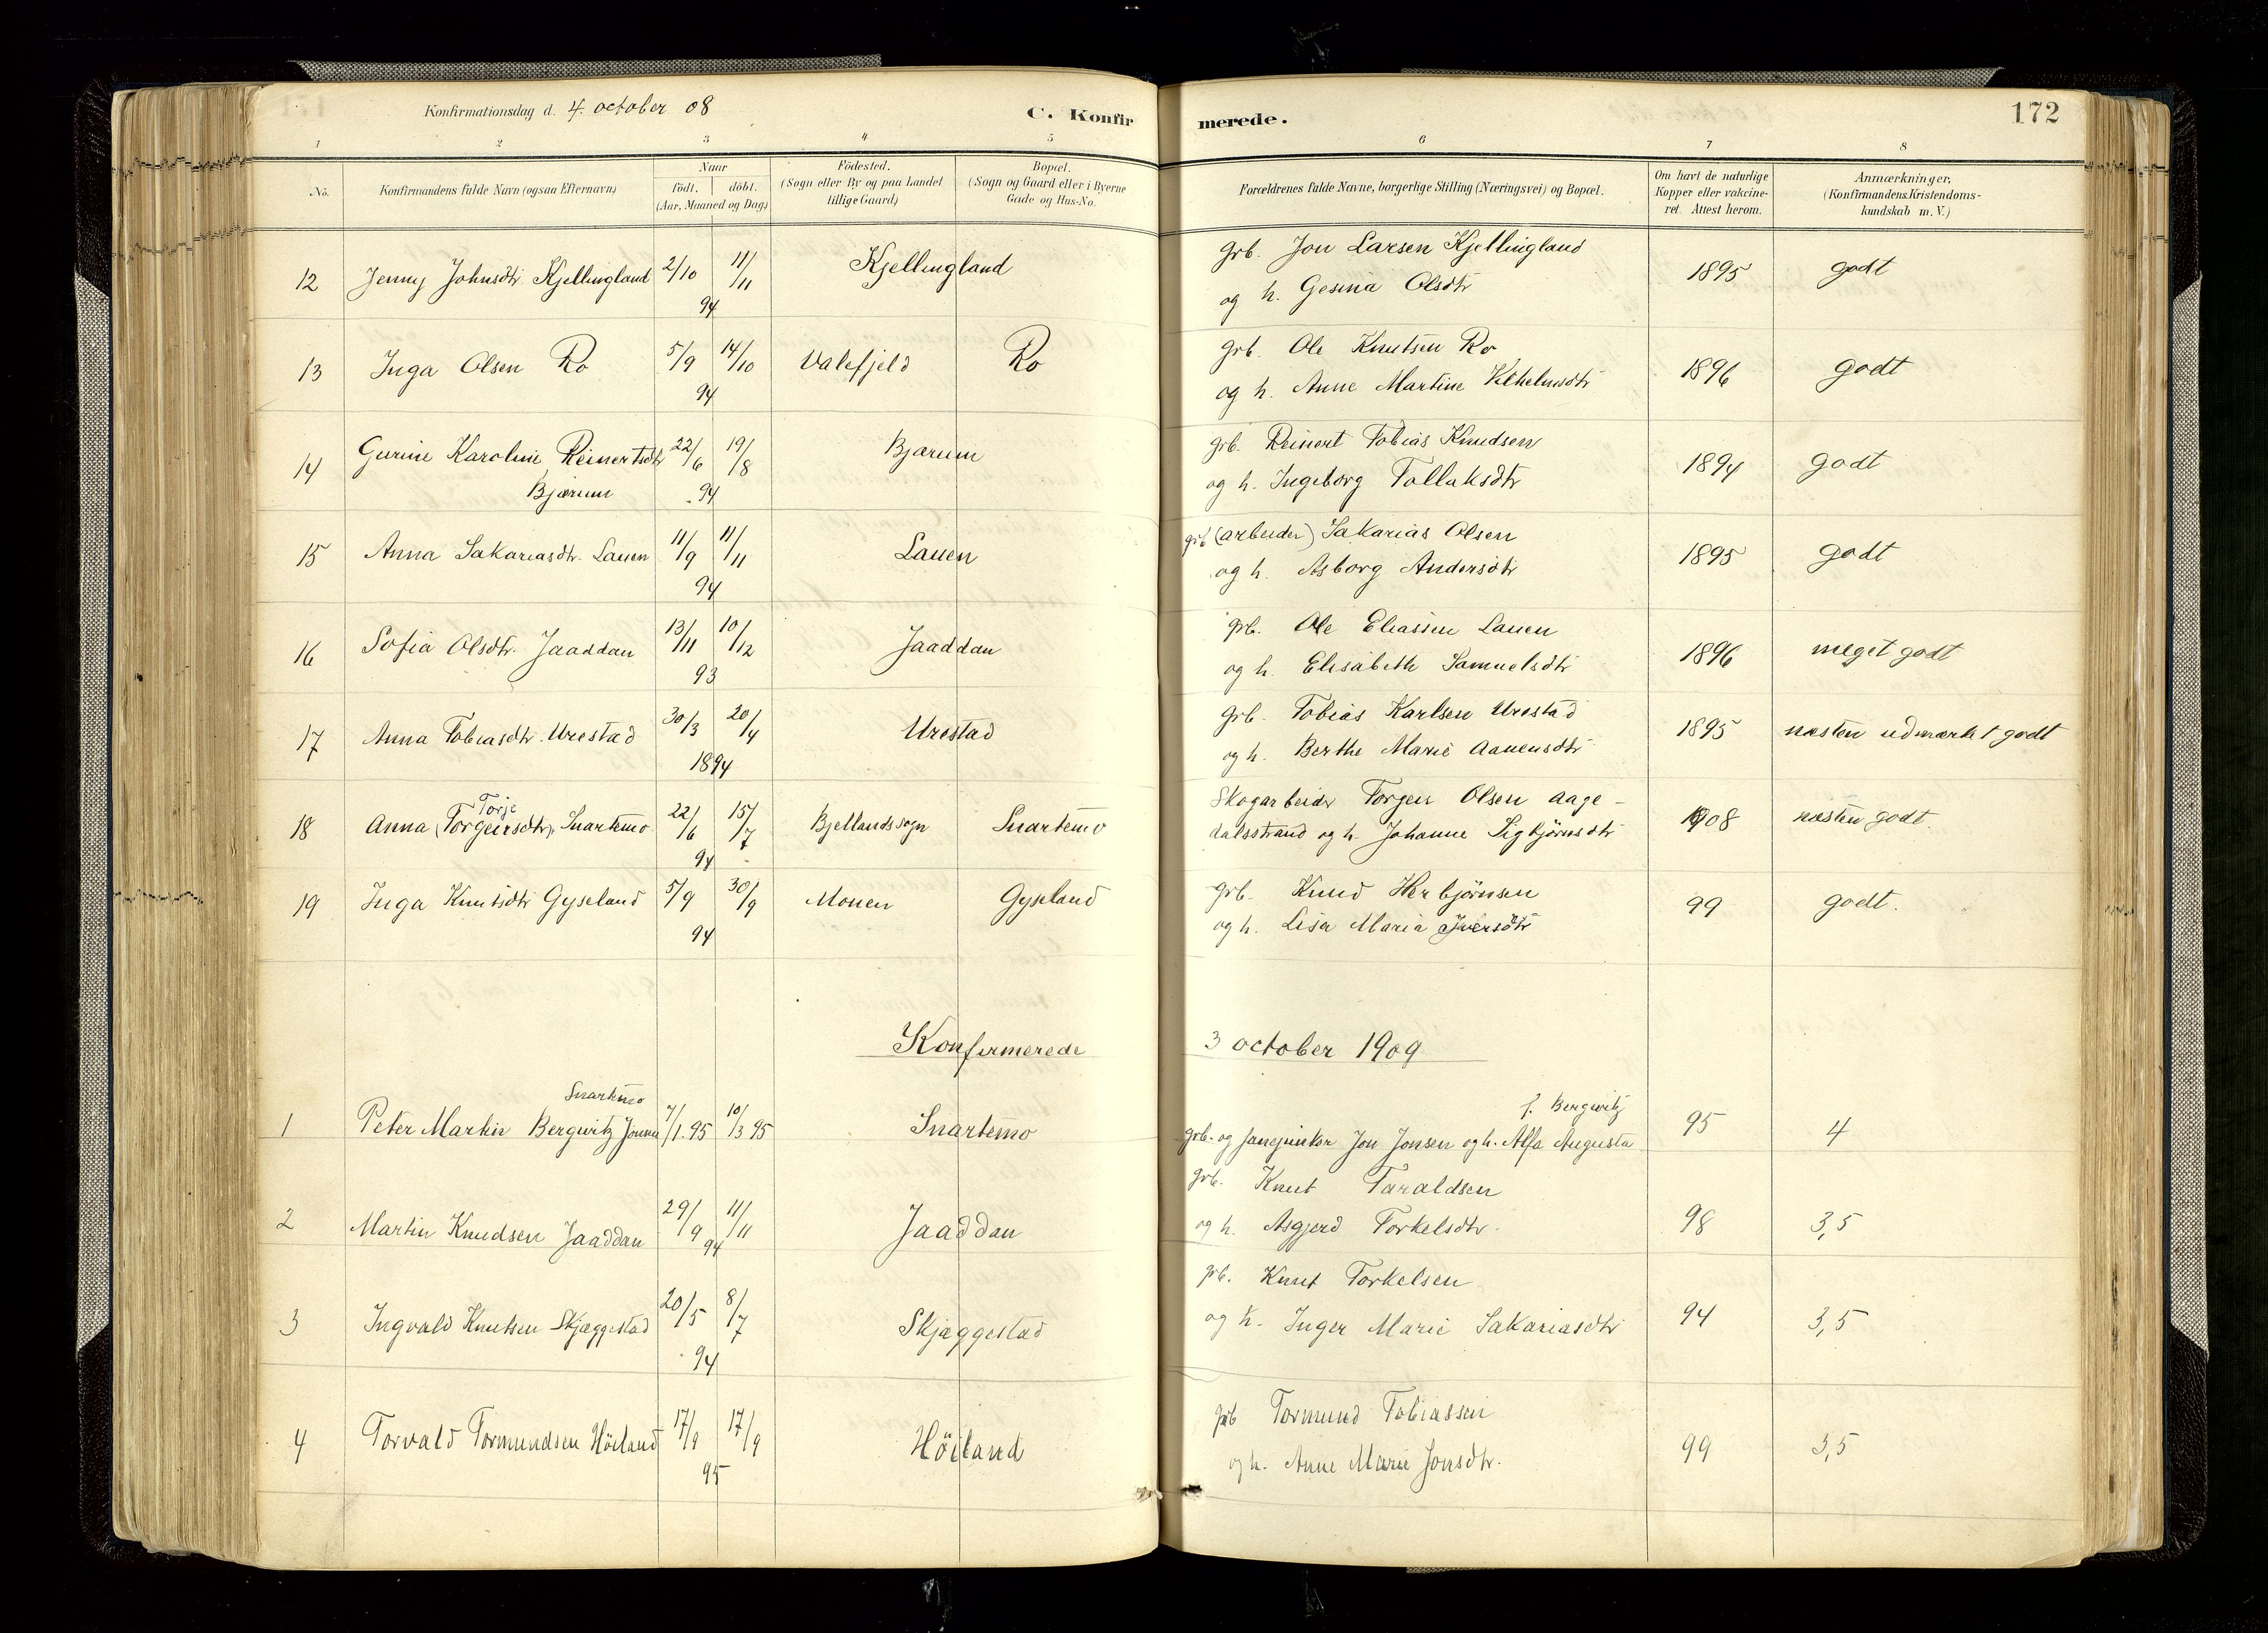 Konfirmationsdag d. 4. october 08 C. Konfirmerede. 172
1 2 3 4 5 6 7 8
No. Konfirmandens fulde Navn (ogsaa Efternavn) Naar födt. döbt. (Aar, Maaned og Dag) Födested. (Sogn eller By og paa Landet tillige Gaard) Bopæl. (Sogn og Gaard eller i Byerne Gade og Hus-No. Forældrenes fulde Navne, borgerlige Stilling (Næringsvei) og Bopæl. Om havt de naturlige Kopper eller vakcineret. Attest herom. Anmærkninger, (Konfirmandens Kristendomskundskab m. V.)
12 Jenny Johnsdtr Kjellingland 2/10 11/11 94 Kjellingland grb. Jon Larsen Kjellingland 1895 godt
og h. Gesina Olsdtr
13 Inga Olsen Ro 5/9 14/10 94 Valefjeld Ro grb. Ole Knutsen Ro 1896 godt
og h. Anne Martine Vilhelmsdtr
14 Gurine Karoline Reinertsdtr 22/6 19/8 94 Bjærum grb. Reinert Tobias Knudsen 1894 godt
Bjærum og h. Ingeborg Tollaksdtr
15 Anna Sakariasdtr. Lauen 11/9 11/11 94 Lauen grb (arbeider) Sakarias Olsen 1895 godt
og h. Asborg Andersdtr
16 Sofia Olsdtr. Jaaddan 13/11 10/12 93 Jaaddan grb. Ole Eliassen Lauen 1896 meget godt
og h. Elisabeth Samuelsdtr
17 Anna Tobiasdtr. Urestad 30/3 20/4 1894 Urestad grb. Tobias Karlsen Urestad 1895 næsten udmærket godt
og h. Berthe Marie Aanensdtr
Torje
18 Anna (Torgeirsdtr), Snartemo 22/6 15/7 94 Bjellands sogn Snartemo Skogarbeider Torgeir Olsen Aage- 1908 næsten godt.
dalsstrand og h. Johanne Sigbjörnsdtr
19 Inga Knutsdtr Gyseland 5/9 30/9 94 Monen Gyseland grb. Knud Herbjörnsen 99 godt.
og h. Lisa Maria Iversdtr
Konfirmerede 3 october 1909
Snartemo f. Bergwitz
1 Peter Martin Bergwitz 7/1.95 10/3 95 Snartemo grb. og Jon Jonsen og h. Alfa Augusta 95 4
2 Martin Knudsen Jaaddan 29/9 11/11 94 Jaaddan grb. Knut Taraldsen 98 3,5
og h. Asgjerd Torkelsdtr.
3 Ingvald Knutsen Skjæggestad 20/5 8/7 94 Skjæggestad grb. Knut Torkelsen 94 3,5
og h. Inger Marie Sakariasdtr
4 Torvald Tormundsen Höiland 17/9 17/9 95 Höiland grb Tormund Tobiassen 99 3,5
og h. Anne Marie Jonsdtr.